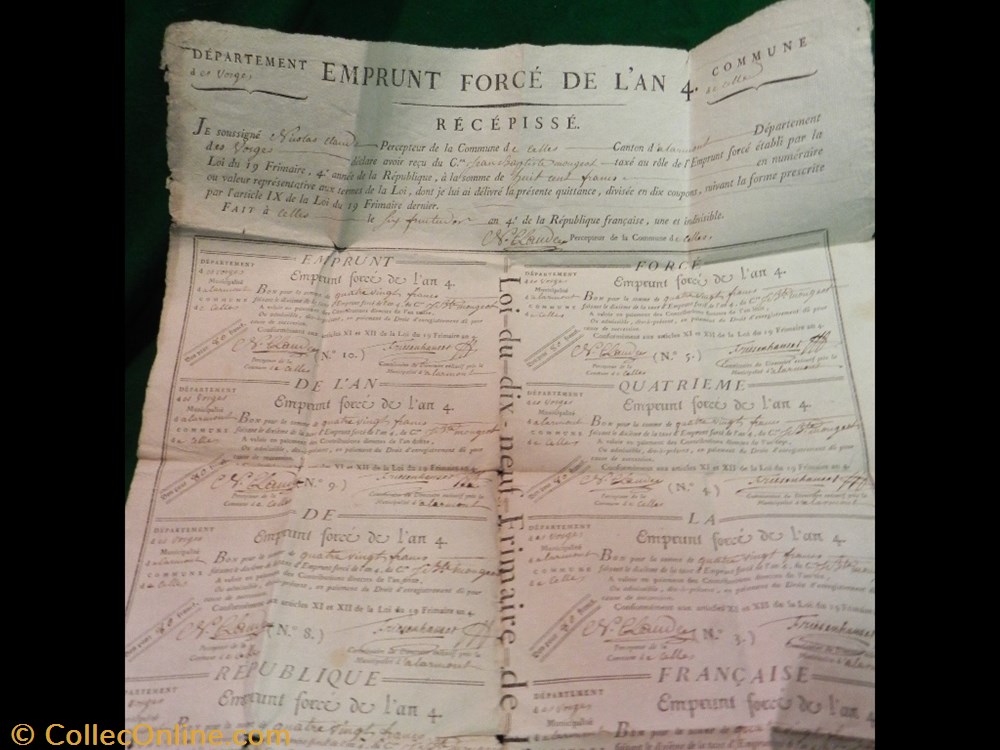 DÉPARTEMENT
des Vosges
EMPRUNT FORCÉ DE L'AN 4.
COMMUNE
de Celles
RÉCÉPISSÉ.
JE soussigné Nicolas Claude Percepteur de la Commune de Celles Canton d'alarmont Département
des Vosges déclare avoir reçu du C.en Jean baptiste mougeot taxé au rôle de l'Emprunt forcé établi par la
Loi du 19 Frimaire, 4.e année de la République, à la somme de huit cent francs en numéraire
ou valeur représentative aux termes de la Loi, dont je lui ai délivré la présente quittance, divisée en dix coupons, suivant la forme prescrite
par l'article IX de la Loi du 19 Frimaire dernier.
FAIT à Celles le six fructidor an 4.e de la République française, une et indivisible.
N. Claude Percepteur de la Commune de Celles
Loi-du-dix-neuf-Frimaire-de-l
EMPRUNT
DÉPARTEMENT
des Vosges
Municipalité
d'alarmont
COMMUNE
de Celles
Emprunt forcé de l'an 4
BON pour la somme de quatre vingt francs
faisant le dixième de la taxe d'Emprunt forcé de l'an 4, du C.en J. Bte mougeot
A valoir en paiement des Contributions directes de l'an
Ou admissible, dès-à-présent, en paiement du Droit d'enregistrement dû pour
cause de succession.
Conformément aux articles XI et XII de la Loi du 19 Frimaire an 4
Bon pour 80 francs
N. Claude (N.° 10.) Friesenhauser
Percepteur de la
Commune de Celles
Commissaire du Directoire exécutif près la
Municipalité d'alarmont
FORCÉ
DÉPARTEMENT
des Vosges
Municipalité
d'alarmont
COMMUNE
de Celles
Emprunt forcé de l'an 4
BON pour la somme de quatre vingt francs
faisant le dixième de la taxe d'Emprunt forcé de l'an 4, du C.en J. Bte mougeot
A valoir en paiement des Contributions directes de l'an
Ou admissible, dès-à-présent, en paiement du Droit d'enregistrement dû pour
cause de succession.
Conformément aux articles XI et XII de la Loi du 19 Frimaire an 4
N. Claude (N.° 5.) Friesenhauser
Percepteur de la
Commune de Celles
Commissaire du Directoire exécutif près la
Municipalité d'alarmont
DE L'AN
DÉPARTEMENT
des Vosges
Municipalité
d'alarmont
COMMUNE
de
Emprunt forcé de l'an 4
BON pour la somme de quatre vingt francs
faisant le dixième de la taxe d'Emprunt forcé de l'an 4, du C.en J. Bte mougeot
A valoir en paiement des Contributions directes de l'an
Ou admissible, dès-à-présent, en paiement du Droit d'enregistrement dû pour
cause de succession.
XI et XII de la Loi du 19 Frimaire an 4
N. Claude (N.° 9.) Friesenhauser
Percepteur de la
Commune de Celles
Commissaire du Directoire exécutif près la
Municipalité d'alarmont
QUATRIEME
DÉPARTEMENT
des Vosges
Municipalité
d'alarmont
COMMUNE
de Celles
Emprunt forcé de l'an 4
BON pour la somme de quatre vingt francs
faisant le dixième de la taxe d'Emprunt forcé de l'an 4, du C.en J. Bte mougeot
A valoir en paiement des Contributions directes de l'an
Ou admissible, dès-à-présent, en paiement du Droit d'enregistrement dû pour
cause de succession.
Conformément aux articles XI et XII de la Loi du 19 Frimaire an 4
N. Claude (N.° 4.) Friesenhauser
Percepteur de la
Commune de Celles
Commissaire du Directoire exécutif près la
Municipalité d'alarmont
DE
DÉPARTEMENT
des Vosges
Municipalité
d'alarmont
COMMUNE
de Celles
Emprunt forcé de l'an 4
BON pour la somme de quatre vingt francs
faisant le dixième de la taxe d'Emprunt forcé de l'an 4, du C.en J. Bte mougeot
A valoir en paiement des Contributions directes de l'an
Ou admissible, dès-à-présent, en paiement du Droit d'enregistrement dû pour
cause de succession.
Conformément aux articles XI et XII de la Loi du 19 Frimaire an 4
N. Claude (N.° 8.) Friesenhauser
Percepteur de la
Commune de Celles
Commissaire du Directoire exécutif près la
Municipalité d'alarmont
LA
DÉPARTEMENT
des Vosges
Municipalité
d'alarmont
COMMUNE
de Celles
Emprunt forcé de l'an 4
BON pour la somme de quatre vingt francs
faisant le dixième de la taxe d'Emprunt forcé de l'an 4, du C.en J. Bte mougeot
A valoir en paiement des Contributions directes de l'an
Ou admissible, dès-à-présent, en paiement du Droit d'enregistrement dû pour
cause de succession.
Conformément aux articles XI et XII de la Loi du 19
N. Claude (N.° 3.) Friesenhauser
Percepteur de la
Commune de Celles
Commissaire du Directoire exécutif près la
Municipalité d'alarmont
RÉPUBLIQUE
DÉPARTEMENT
des Vosges
Emprunt forcé de l'an 4
BON pour la somme de quatre vingt francs
FRANÇAISE
DÉPARTEMENT
des Vosges
Municipalité
Emprunt forcé de l'an 4
BON pour la somme de quatre vingt francs
© CollecOnline.com